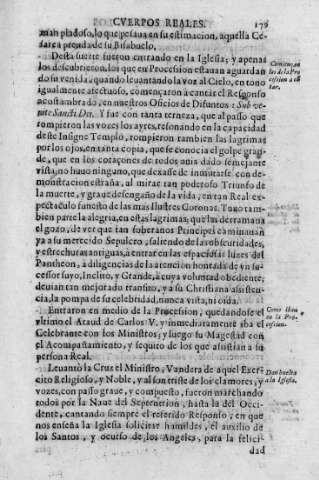 CVERPOS REALES. 179
man piadoso, lo que pesaua en su estimacion, aquella Ce-
sarea prenda de su Bisabuelo.
Desta suerte fueron entrando en la Iglesia; y apenas
los descubrieron, los que en Procession estauan aguardan
do su venida, quando leuantando la voz al Cielo, en tono
igualmente afectuoso, començaron à cantar el Responso
acostumbrado, en nuestros Oficios de Difuntos: Sub ve-
nite Sancti Dei. Y fue con tanta terneza, que al passo que
rompieron las vozes los ayres, resonando en la capacidad
deste Insigne Templo, rompieron tambien las lagrimas
por los ojos, en tanta copia, que se conocia el golpe gran-
de, que en los coraçones de todos auia dado semejante
vista, no huuo ninguno, que dexasse de inmutarse con de-
monstracion estraña, al mirar tan poderoso Triunfo de
la muerte, y graue desengaño de la vida, en tan Real ex-
pectaculo funesto de las mas Ilustres Coronas. Tuuo tam-
bien parte la alegria, en estas lagrimas; que las derramaua
el gozo, de ver que tan soberanos Principes caminauan
ya a su merecido Sepulcro, saliendo de las obscuridades,
y estrechuras antiguas, à entrar en las espaciosas luzes del
Pantheon, à diligencias de la atencion honrada de vn su-
cessor suyo, Inclito, y Grande, à cuya voluntad obediente;
deuian tan mejorado transito, y a su Christiana assisten-
cia, la pompa de su celebridad, nunca vista, ni oida.
Entraron en medio de la Procession, quedandose el
vltimo el Ataud de Carlos V. y inmediatamente iba el
Celebrante con los Ministros; y luego su Magestad con
el Acompañamiento, y sequito de los que assistian a su
persona Real.
Leuantò la Cruz el Ministro, Vandera de aquel Exerci-
to Religioso, y Noble, y al son triste de los clamores, y
vozes, con passo graue, y compuesto, fueron marchando
todos por la Naue del Septentrion, hasta la del Occi-
dente, cantando siempre el referido Responso, en que
nos enseña la Iglesia solicitar humildes, el auxilio de
los Santos, y ocurso de los Angeles, para la felici-
dad
Como iban
en la Pro-
cession.
Dan buelta
a la Iglesia.